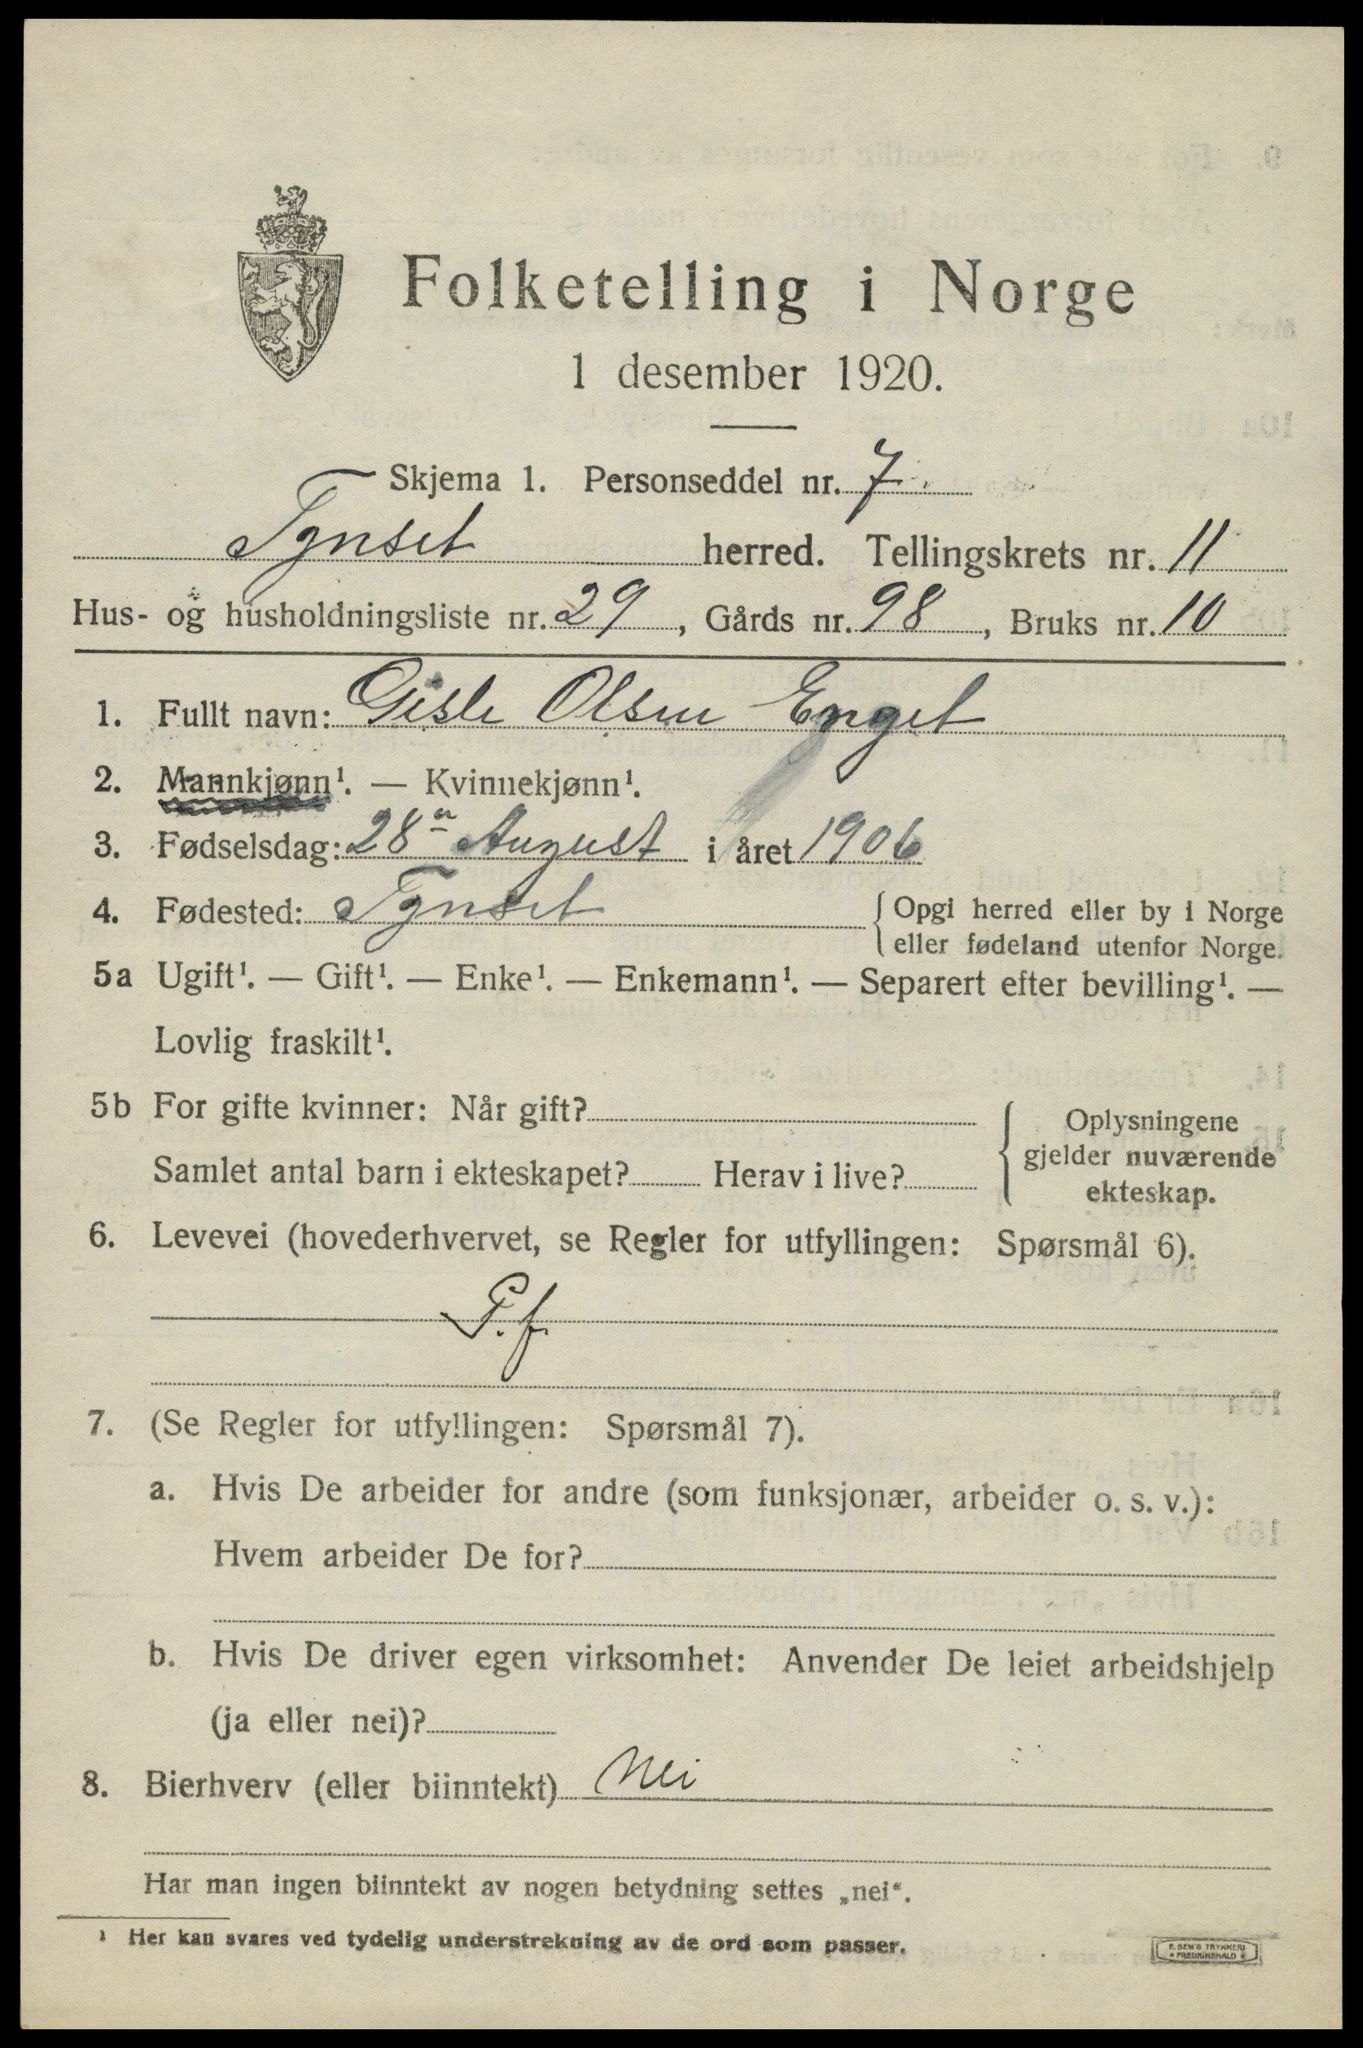 Folketelling i Norge
1 desember 1920.
Skjema 1. Personseddel nr. 7
Tynset herred. Tellingskrets nr. 11
Hus- og husholdningsliste nr. 29, Gårds nr. 98, Bruks nr. 10
1. Fullt navn: Gisle Olsen Enget
2. Mannkjønn¹. — Kvinnekjønn¹.
3. Fødselsdag: 28 August i året 1906
4. Fødested: Tynset {Opgi herred eller by i Norge
eller fødeland utenfor Norge.
5a Ugift¹. — Gift¹. — Enke¹. — Enkemann¹. — Separert efter bevilling¹. —
Lovlig fraskilt¹.
5b For gifte kvinner: Når gift?
Samlet antal barn i ekteskapet? Herav i live?
{Oplysningene
gjelder nuværende
ekteskap.
6. Levevei (hovederhvervet, se Regler for utfyllingen: Spørsmål 6).
7. (Se Regler for utfyllingen: Spørsmål 7).
a. Hvis De arbeider for andre (som funksjonær, arbeider o. s. v.):
Hvem arbeider De for?
b. Hvis De driver egen virksomhet: Anvender De leiet arbeidshjelp
(ja eller nei)?
8. Bierhverv (eller biinntekt) Nei
Har man ingen biinntekt av nogen betydning settes „nei“.
¹ Her kan svares ved tydelig understrekning av de ord som passer.
E. SEM'S TRYKKERI
FREDRIKSHALD